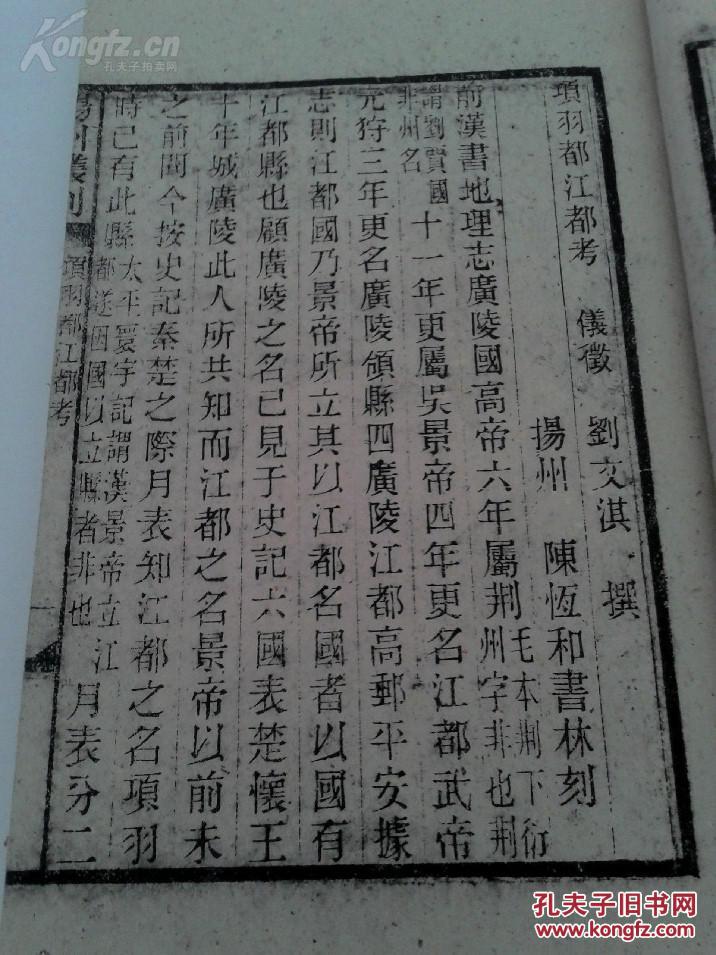 項羽都江都考
儀徵 劉文淇 撰
揚州 陳恆和書林刻
前漢書地理志廣陵國高帝六年屬荆州毛本荆下衍州字非也荆
謂劉賈國非州名十一年更屬吳景帝四年更名江都武帝
元狩三年更名廣陵領縣四廣陵江都高郵平安據
志則江都國乃景帝所立其以江都名國者以國有
江都縣也顧廣陵之名已見于史記六國表楚懷王
十年城廣陵此人所共知而江都之名景帝以前未
之前聞今按史記秦楚之際月表知江都之名項羽
時已有此縣太平寰宇記謂漢景帝立江都遂因國以立縣者非也月表分二
揚州叢刻
項羽都江都考
一
Kongfz.cn
孔夫子拍卖网
孔夫子旧书网
WWW.KONGFZ.COM